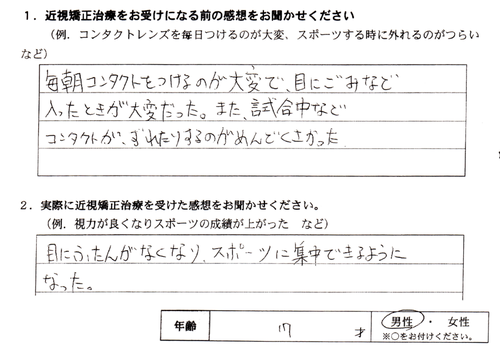 １．近視矯正治療をお受けになる前の感想をお聞かせください
（例．コンタクトレンズを毎日つけるのが大変、スポーツする時に外れるのがつらい
など）
毎朝コンタクトをつけるのが大変で、目にごみなど
入ったときが大変だった。また、試合中など
コンタクトが、ずれたりするのがめんどくさかった
２．実際に近視矯正治療を受けた感想をお聞かせください。
（例．視力が良くなりスポーツの成績が上がった　など）
目にふたんがなくなり、スポーツに集中できるように
なった。
年齢　17　才　男性・　女性
※○をお付けください。